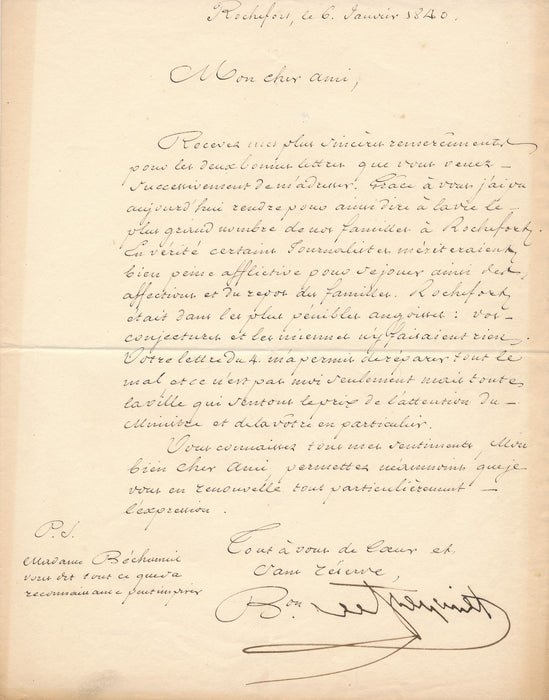 Rochefort, le 6. Janvier 1840.
Mon cher ami,
Recevez mes plus sincères remercîments
pour les deux bonnes lettres que vous venez
successivement de m'adresser. Grâce à vous j'ai vu
aujourd'hui rendre pour ainsi dire à la vie le
plus grand nombre de nos familles à Rochefort.
En vérité certains Journalistes mériteraient
bien peine afflictive pour se jouer ainsi des
affections et du repos des familles. Rochefort,
était dans les plus pénibles angoisses : vos
conjectures et les miennes n'y faisaient rien.
Votre lettre du 4. m'a permis de réparer tout le
mal et ce n'est pas moi seulement mais toute
la ville qui sentons le prix de l'attention du
Ministre et de la vôtre en particulier.
Vous connaissez tous mes sentiments, Mon
bien cher Ami, permettez néanmoins que je
vous en renouvelle tout particulièrement
l'expression.
Tout à vous de Cœur et
sans réserve,
Bon de Freycinet
P.S.
Madame Béchameil
vous dit tout ce que la
reconnaissance peut inspirer